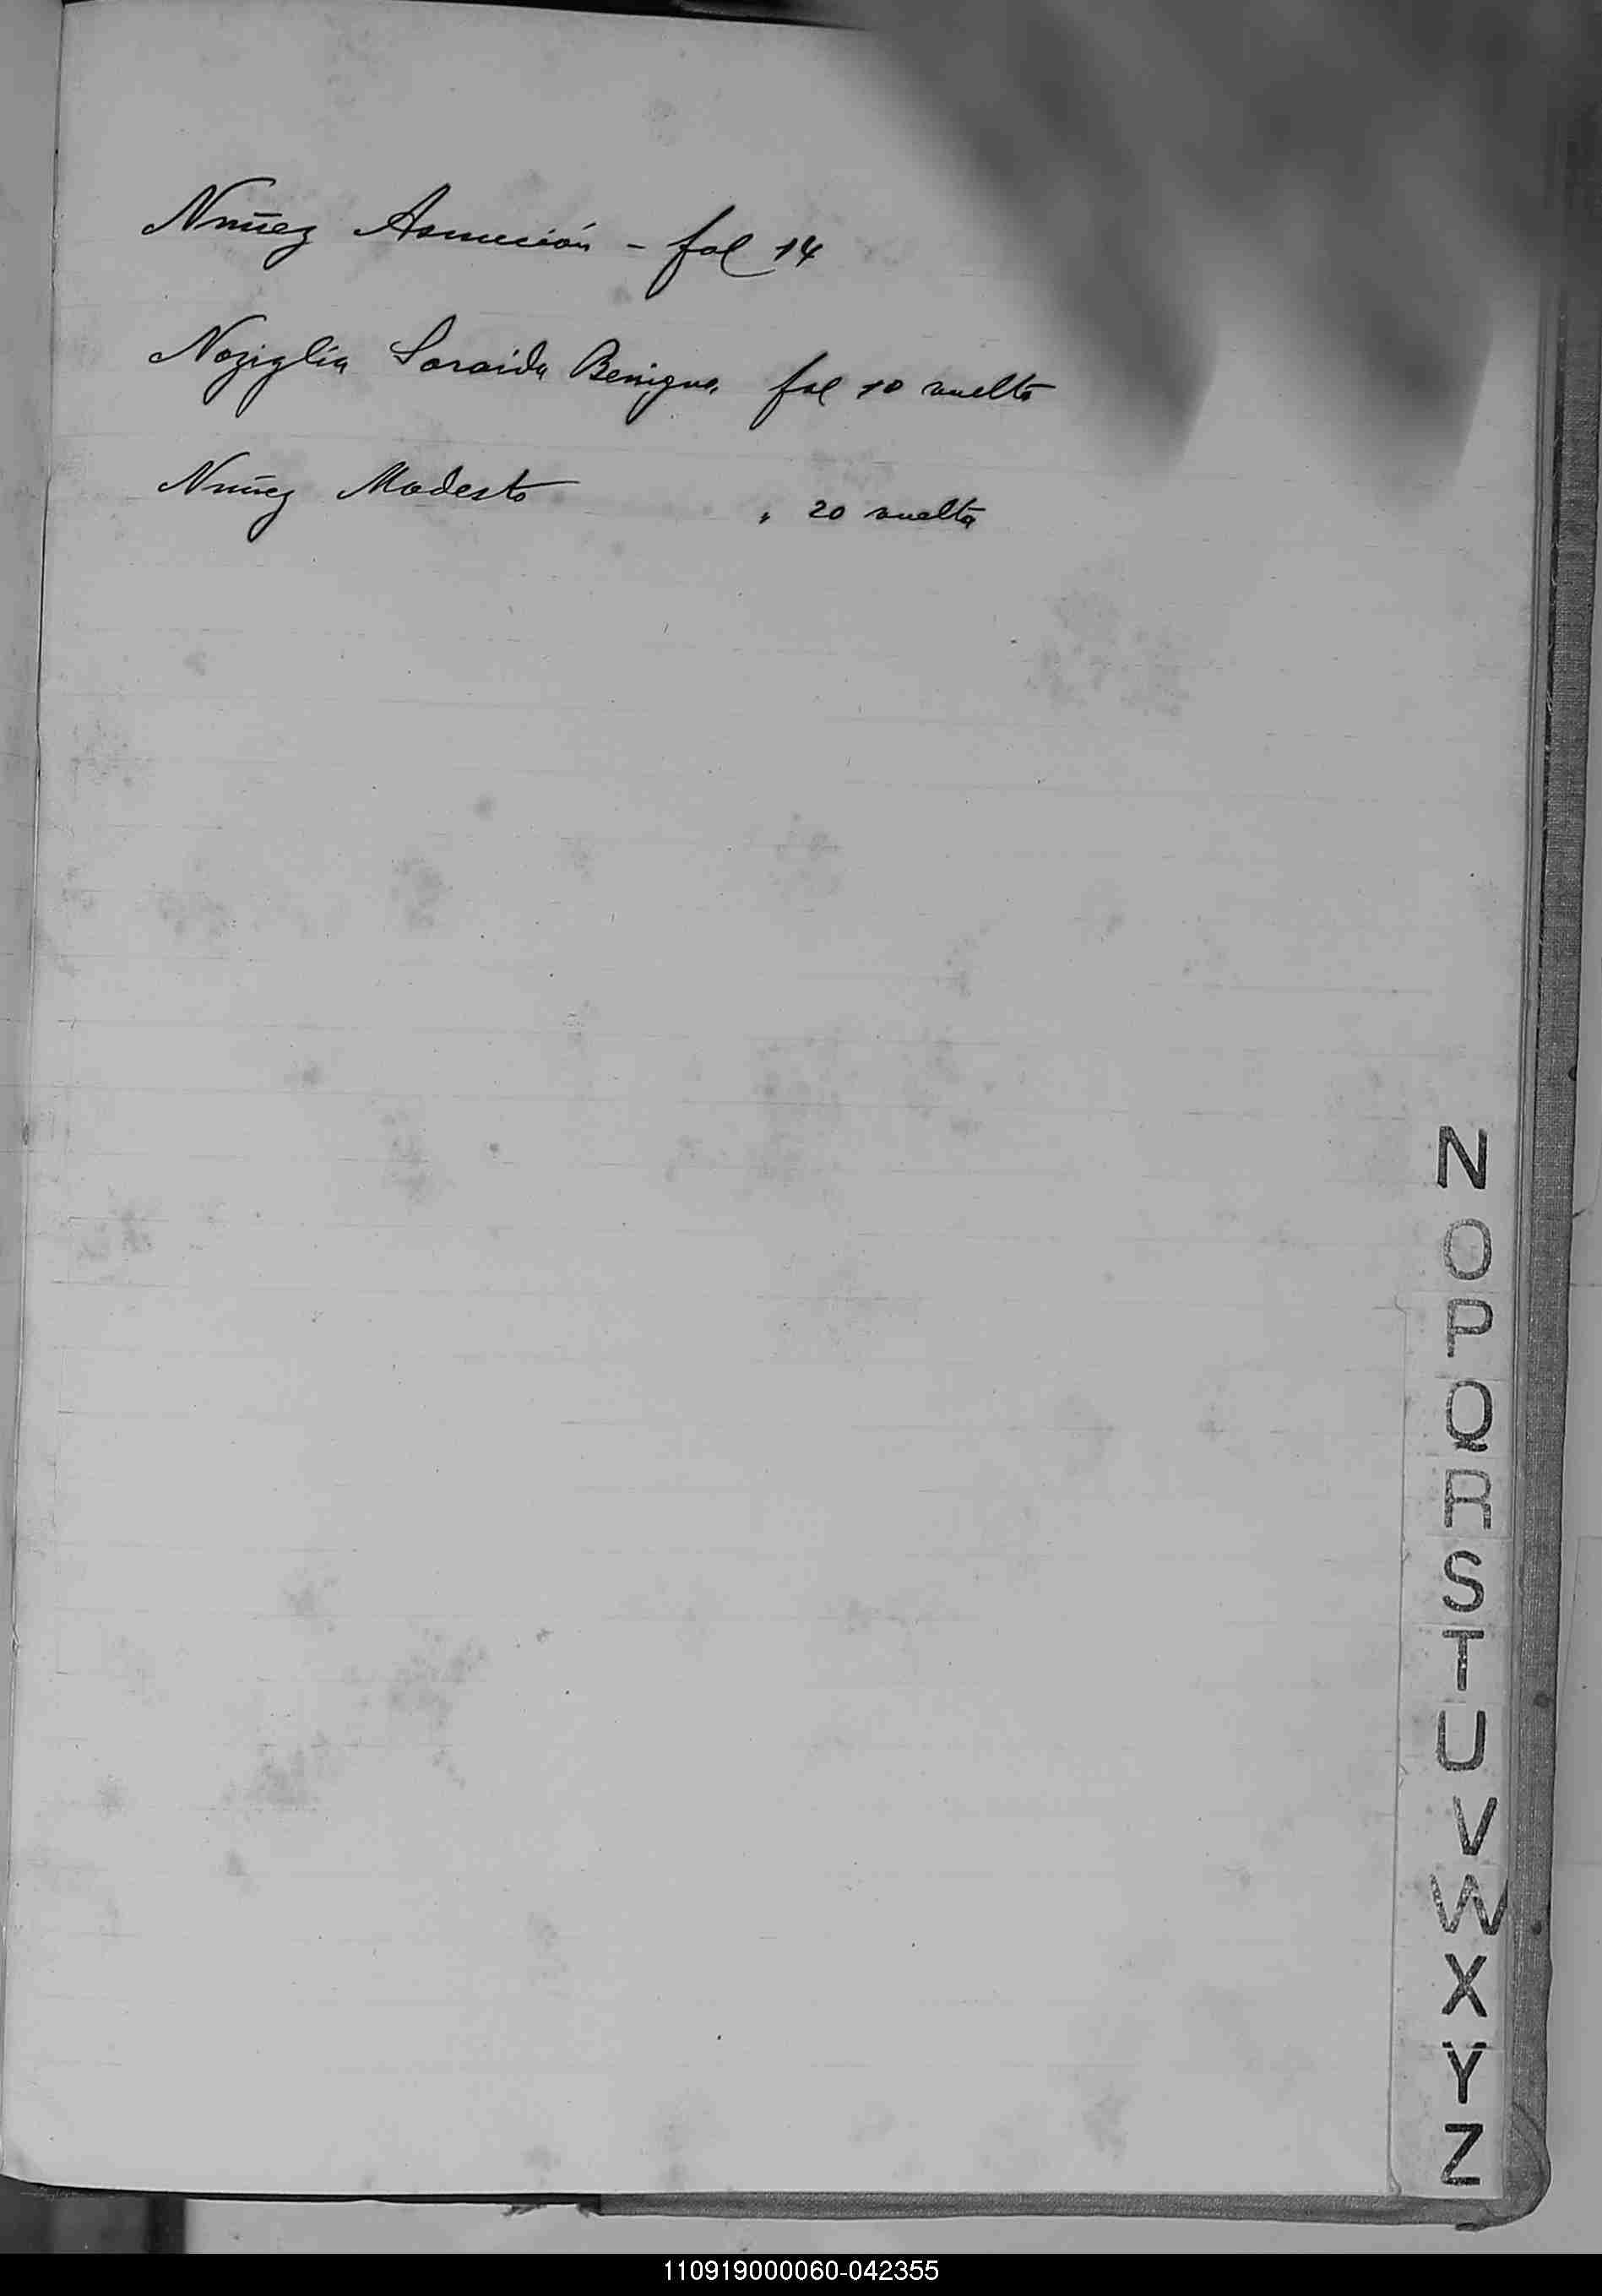 Nuñez Asunción - fol 14
Noziglia Soraida Benigna fol 10 vuelta
Nuñez Modesto " 20 vuelta
N
O
P
Q
R
S
T
U
V
W
X
Y
Z
110919000060-042355